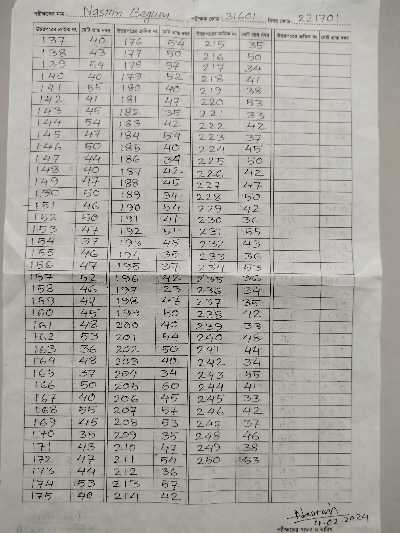 পরীক্ষকের নাম : Nasrin Begum পরীক্ষক কোড : 31601 বিষয় কোড : 221701
137 40 176 54 215 35
138 43 177 50 216 50
139 54 178 57 217 34
140 40 179 52 218 41
141 55 180 40 219 38
142 41 181 47 220 53
143 45 182 35 221 33
144 54 183 42 222 42
145 47 184 54 223 37
146 50 185 40 224 45
147 44 186 34 225 50
148 40 187 42 226 42
149 47 188 45 227 47
150 50 189 34 228 50
151 46 190 54 229 42
152 50 191 41 230 36
153 47 192 231 55
154 37 193 48 232 43
155 46 194 35 233 36
156 47 195 37 234 53
157 52 196 42 235 36
158 46 197 23 236 34
159 49 198 47 237 35
160 45 199 50 238 42
161 48 200 40 239 33
162 53 201 54 240 48
163 36 202 50 241 44
164 48 203 40 242 34
165 37 204 34 243 55
166 50 205 50 244
167 40 206 45 245 33
168 55 207 57 246 42
169 45 208 53 247 37
170 35 209 35 248 46
171 43 210 47 249 38
172 47 211 54 250 53
173 44 212 36
174 53 213 57
175 40 214 42
Nasrin
4.02.2024